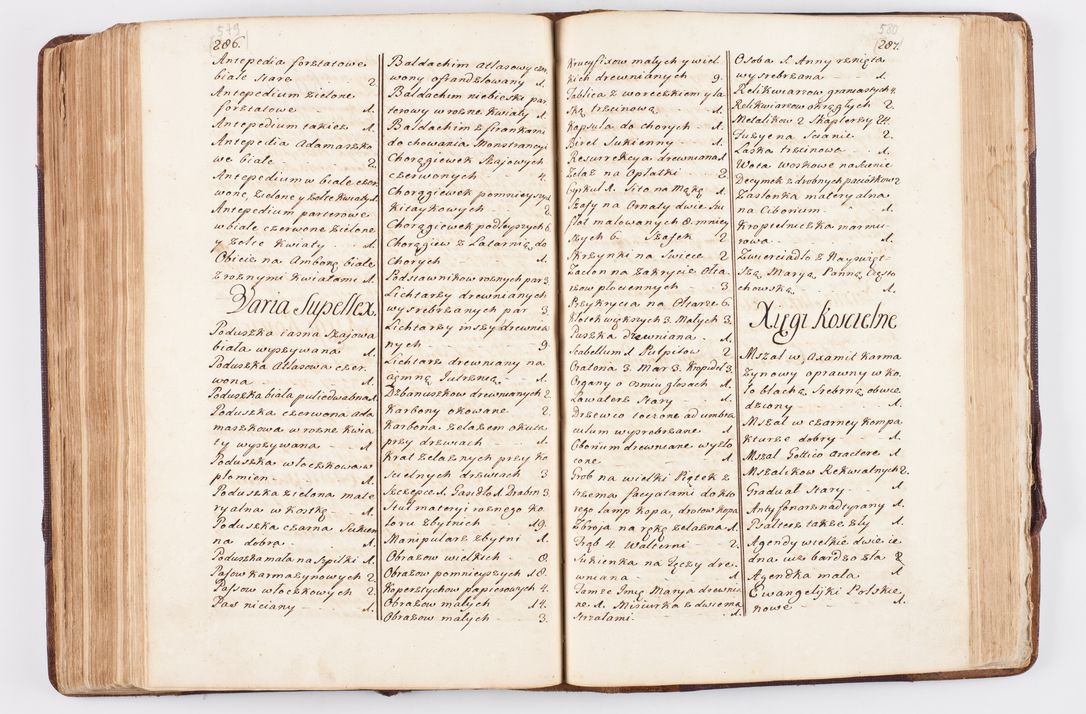 579
286.
Antepedia forsztatowe
białe stare 2.
Antepedium zielone
forsztatowe 1.
Antepedium takiez 1.
Antepedia Adamaszko
we białe 2.
Antepedium w białe czer
wone, zielone y żołte kwiaty 1.
Antepedium parterowe
w białe czerwone zielone
y żołte kwiaty 1.
Obicie na Ambonę białe
z roznymi kwiatami 1.
Varia Supellex.
Poduszka iasna szajowa
biała wyszywana 1.
Poduszka Atłasowa czer
wona 1.
Poduszka biała pułiedwabna 1.
Poduszka czerwona ada
maszkowa w rozne kwia
ty wyszywana 1.
Poduszka włoczkowa w
płomien 1.
Poduszka zielona mate
ryalna w kostkę 1.
Poduszka czarna sukien
na dobra 1.
Poduszka mała na szpilki 1.
Pasow karmazynowych 2.
Passow włoczkowych 2.
Pas niciany 1.
Baldachim Atłasowy czer
wony ofrandzlowany 1.
Baldachim niebieski par
terowy w rozne kwiaty 1.
Baldachim z firankami
do chowania Monstrancyi
Chorągiewek szajowych
czerwonych 4.
Chorągiewek pomnieyszych
kitaykowych 2.
Chorągiewek podleyszych 6.
Chorągiew z Latarnią do
Chorych 1.
Podstawnikow roznych par 3.
Lichtarzy drewnianych
wysrebrzanych par 3.
Lichtarzy inszy drewnia
nych 9.
Lichtarz drewniany na
ciemną Iutrznią 1.
Dzbanuszkow drewnianych 2.
Karbony okowane 2.
Karbona żelazem okuta
przy drzwiach 1.
Krat żelaznych przy ko
scielnych drzwiach 3
Szczypce 1. Gasidło 1. Drabin 3.
Stuł materyi roznego ko
loru zbytnich 19.
Manipularz zbytni 1.
Obrazow wielkich 8.
Obrazow pomnieyszych 18.
Kopersztychow papierowych 4.
Obrazow małych 14.
Obrazow małych 3.
580
287.
Krucyfixow małych y wiel
kich drewnianych 9.
Tablica z woreczkiem y la
ską trzcinową 1.
Kapsuła do chorych 1.
Biret sukienny 1.
Resurrekcya drewniana 1
Żelaz na Opłatki 2.
Cyrkuł 1. Sito na Mąkę 1.
Szafy na Ornaty dwie Su
flot malowanych 8. mniey
szych 6. Szafek 2
Skrzynki na swiece 2.
Zasłon na zakrycie Ołta
rzow płociennych 3
Przykrycia na Ołtarze 6.
Kłotek większych 3. Małych 3.
Puszka drewniana 1.
Scabellum 1. Pulpitow 2.
Oratoria 3. Mar 3. Kropideł 3.
Organy o osmiu głosach 1.
Lawaterz stary 1.
Drzewco toczone ad umbra
culum wysrebrzane 1.
Ciborium drewniane wyzło
cone 1.
Grob na wielki Piątek z
trzema facyatami do kto
rego lamp kopa, drotow kopa
Zbroja na rękę żelazna 1.
Trąb 4. Walterni 2.
Sukienka na Tęczy dre
wniana 1
Tamże Imię Marya drewnia
ne 1. Misiurka z dwiema
strzałami.
Osoba S. Anny rznięta
wysrebrzana 1.
Relikwiarzow graniastych 4.
Relikwiarzow okrągłych 2.
Metalikow 2 Skaplerzy 24.
Tuzye na scianie 2.
Laska trzcinowa 1.
Wota woskowe na scienie
Decymek z drobnych paciorkow 2
Zasłonka materyalna
na Ciborium 1.
Kropielniczka marmu
rowa 1.
Zwierciadło z Nayswięt-
szą Maryą Panną Często
chowską 1.
Xięgi Koscielne
Mszał w Axamit karma
zynowy oprawny w ko
ło blachą srebrną obwie
dziony 1.
Mszał w czarney kompa
kturze dobry 1.
Mszał Gottico Caractere 1.
Mszalikow Rekwialnych 2.
Graduał stary 1.
Antyfonarz nadtyrany 1.
Psałterz także zły 1.
Agendy wielkie dwie ie
dna uz bardzo zła 2
Agendka mała 1
Ewangelyki Polskie
nowe 1.